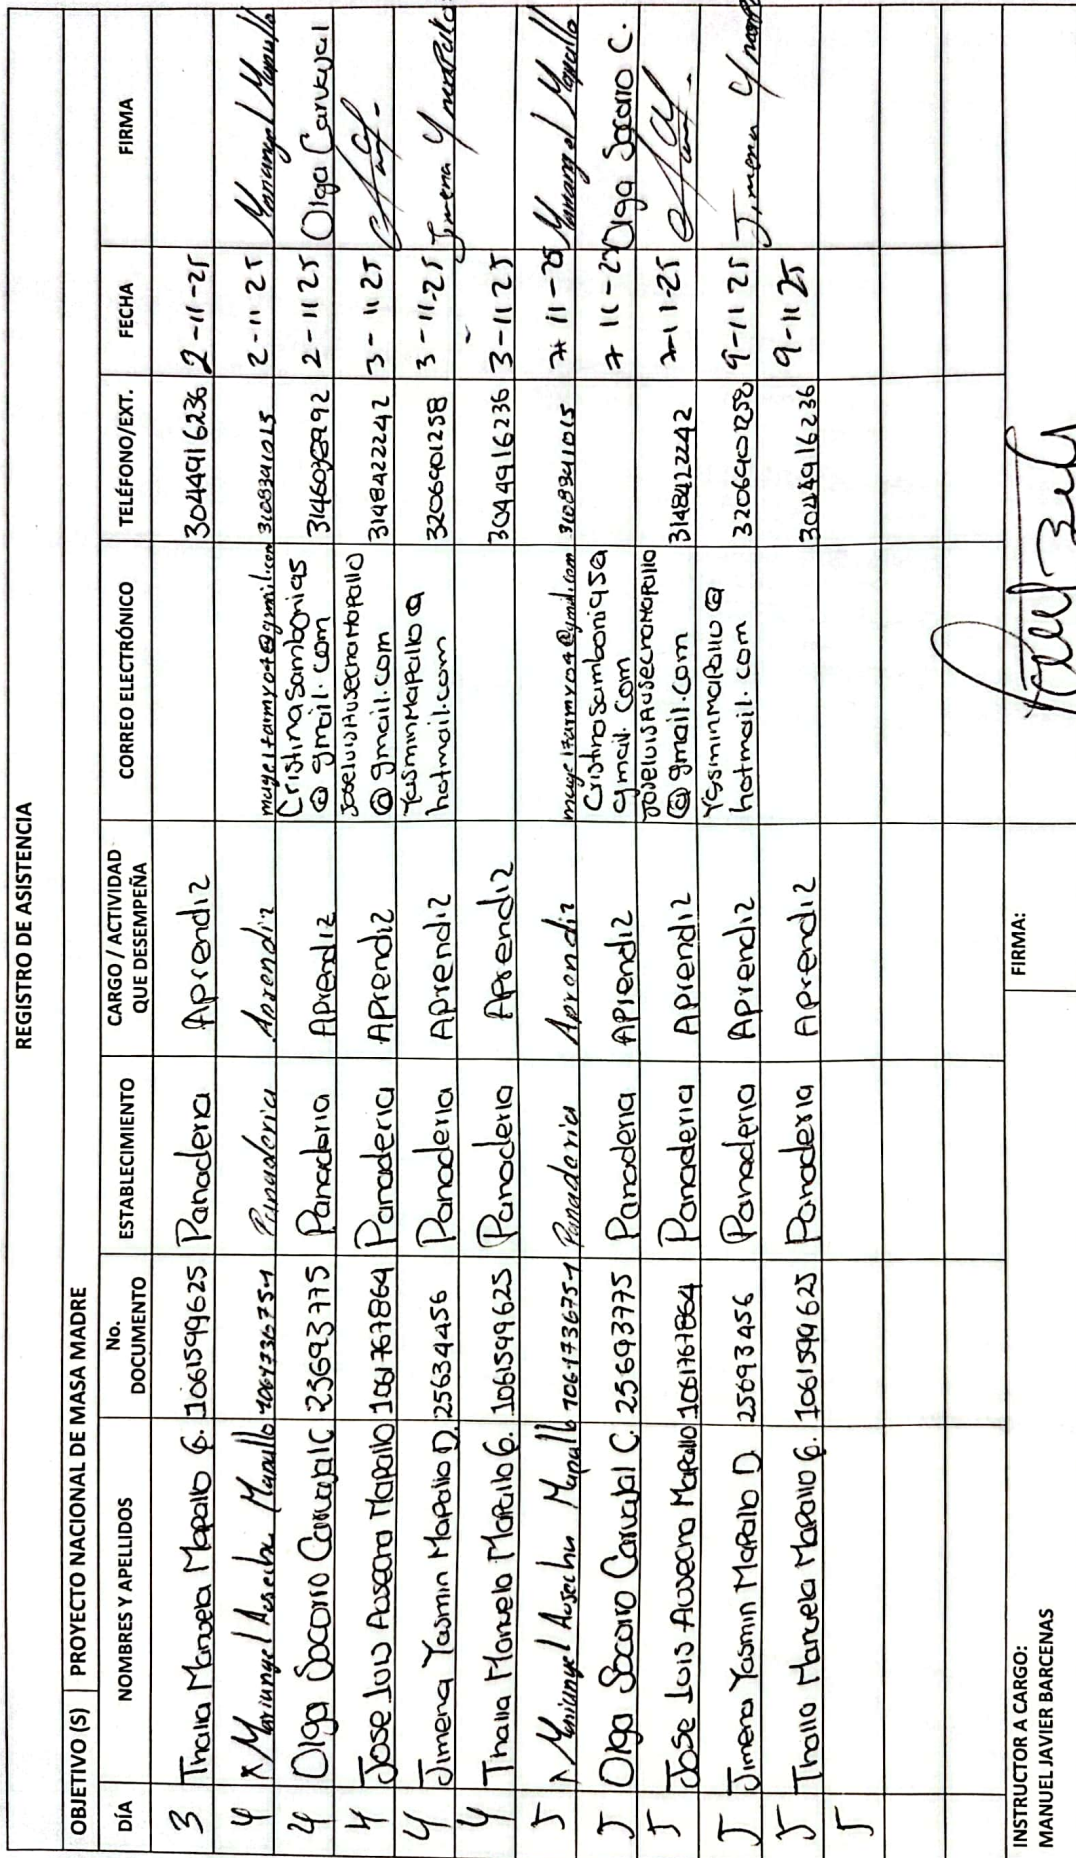 REGISTRO DE ASISTENCIA
OBJETIVO (S) PROYECTO NACIONAL DE MASA MADRE
DÍA NOMBRES Y APELLIDOS No. DOCUMENTO ESTABLECIMIENTO CARGO / ACTIVIDAD QUE DESEMPEÑA CORREO ELECTRÓNICO TELÉFONO/EXT. FECHA FIRMA
3 Thalia Manuela Mapallo G. 1061599625 Panaderia Aprendiz 3044916236 2-11-25
4 x Mariangel Ausecha Mapallo Panaderia Aprendiz 3108341015 2-11 25 Mariangel Mapallo
4 Olga Socorro Carvajal C 25693775 Panaderia Aprendiz Cristinasamboni95
@gmail.com 2-11 25 Olga Carvajal
4 Jose Luis Ausecha Mapallo 1061767864 Panaderia Aprendiz JoseluisAusechaMapallo
@gmail.com 3148422242 3-11 25
4 Jimena Yasmin Mapallo D. 25634456 Panaderia Aprendiz YasminMapallo@
hotmail.com 3206901258 3-11-25 Jimena
4 Thalia Manuela Mapallo G. 1061599625 Panaderia Aprendiz 3044916236 3-11 25
5 Mariangel Ausecha Mapallo Panaderia Aprendiz 3108341015 7-11-25 Mariangel Mapallo
5 Olga Socorro Carvajal C. 25693775 Panaderia Aprendiz
gmail.com 7 11-25 Olga Socorro C.
5 Jose Luis Ausecha Mapallo 1061767864 Panaderia Aprendiz JoseluisAusechaMapallo
@gmail.com 3148422242 7-11-25
5 Jimena Yasmin Mapallo D. 25693456 Panaderia Aprendiz YasminMapallo@
hotmail.com 3206901258 9-11 25 Jimena
5 Thalia Manuela Mapallo G. 1061599625 Panaderia Aprendiz 3044916236 9-11 25
5
INSTRUCTOR A CARGO:
MANUEL JAVIER BARCENAS
FIRMA: